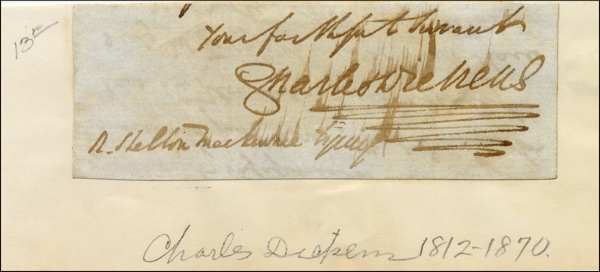 13.00
Your faithful Servant
Charles Dickens
R. Shelton Mackenzie Esquire
Charles Dickens 1812-1870.